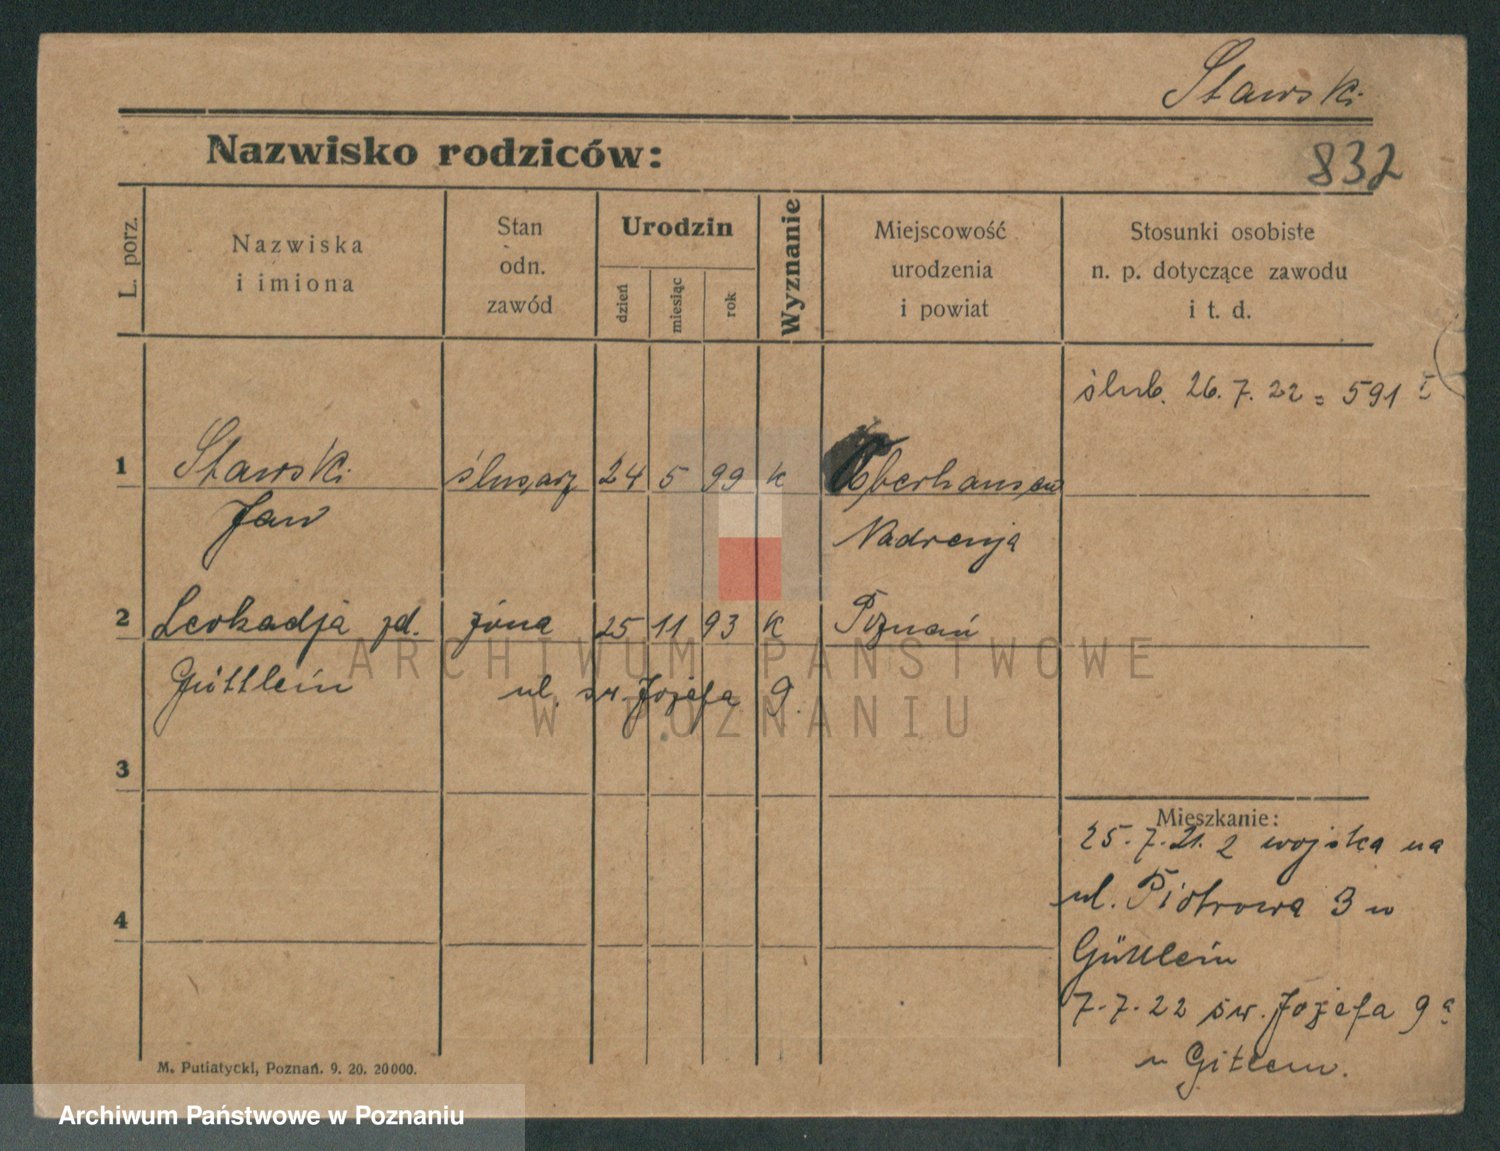 Stawski
Nazwisko rodziców:
832
L. porz.
Nazwiska
i imiona
Stan
odn.
zawód
Urodzin
dzień
miesiąc
rok
Wyznanie
Miejscowość
urodzenia
i powiat
Stosunki osobiste
n. p. dotyczące zawodu
i t. d.
ślub. 26. 7. 22 = 591 I
1 Stawski ślusarz 24 5 99 k Oberhausen
Jan Nadrenja
2 Leokadja zd. żona 25 11 93 k Poznań
Güttlein ul. św. Józefa 9.
3
Mieszkanie:
25. 7. 21. z wojska na
ul. Piotrowa 3 u
4
Güttlein
7. 7. 22 św. Józefa 9a
u Gitlein.
M. Putiatycki, Poznań. 9. 20. 20000.
ARCHIWUM PAŃSTWOWE
W POZNANIU
Archiwum Państwowe w Poznaniu